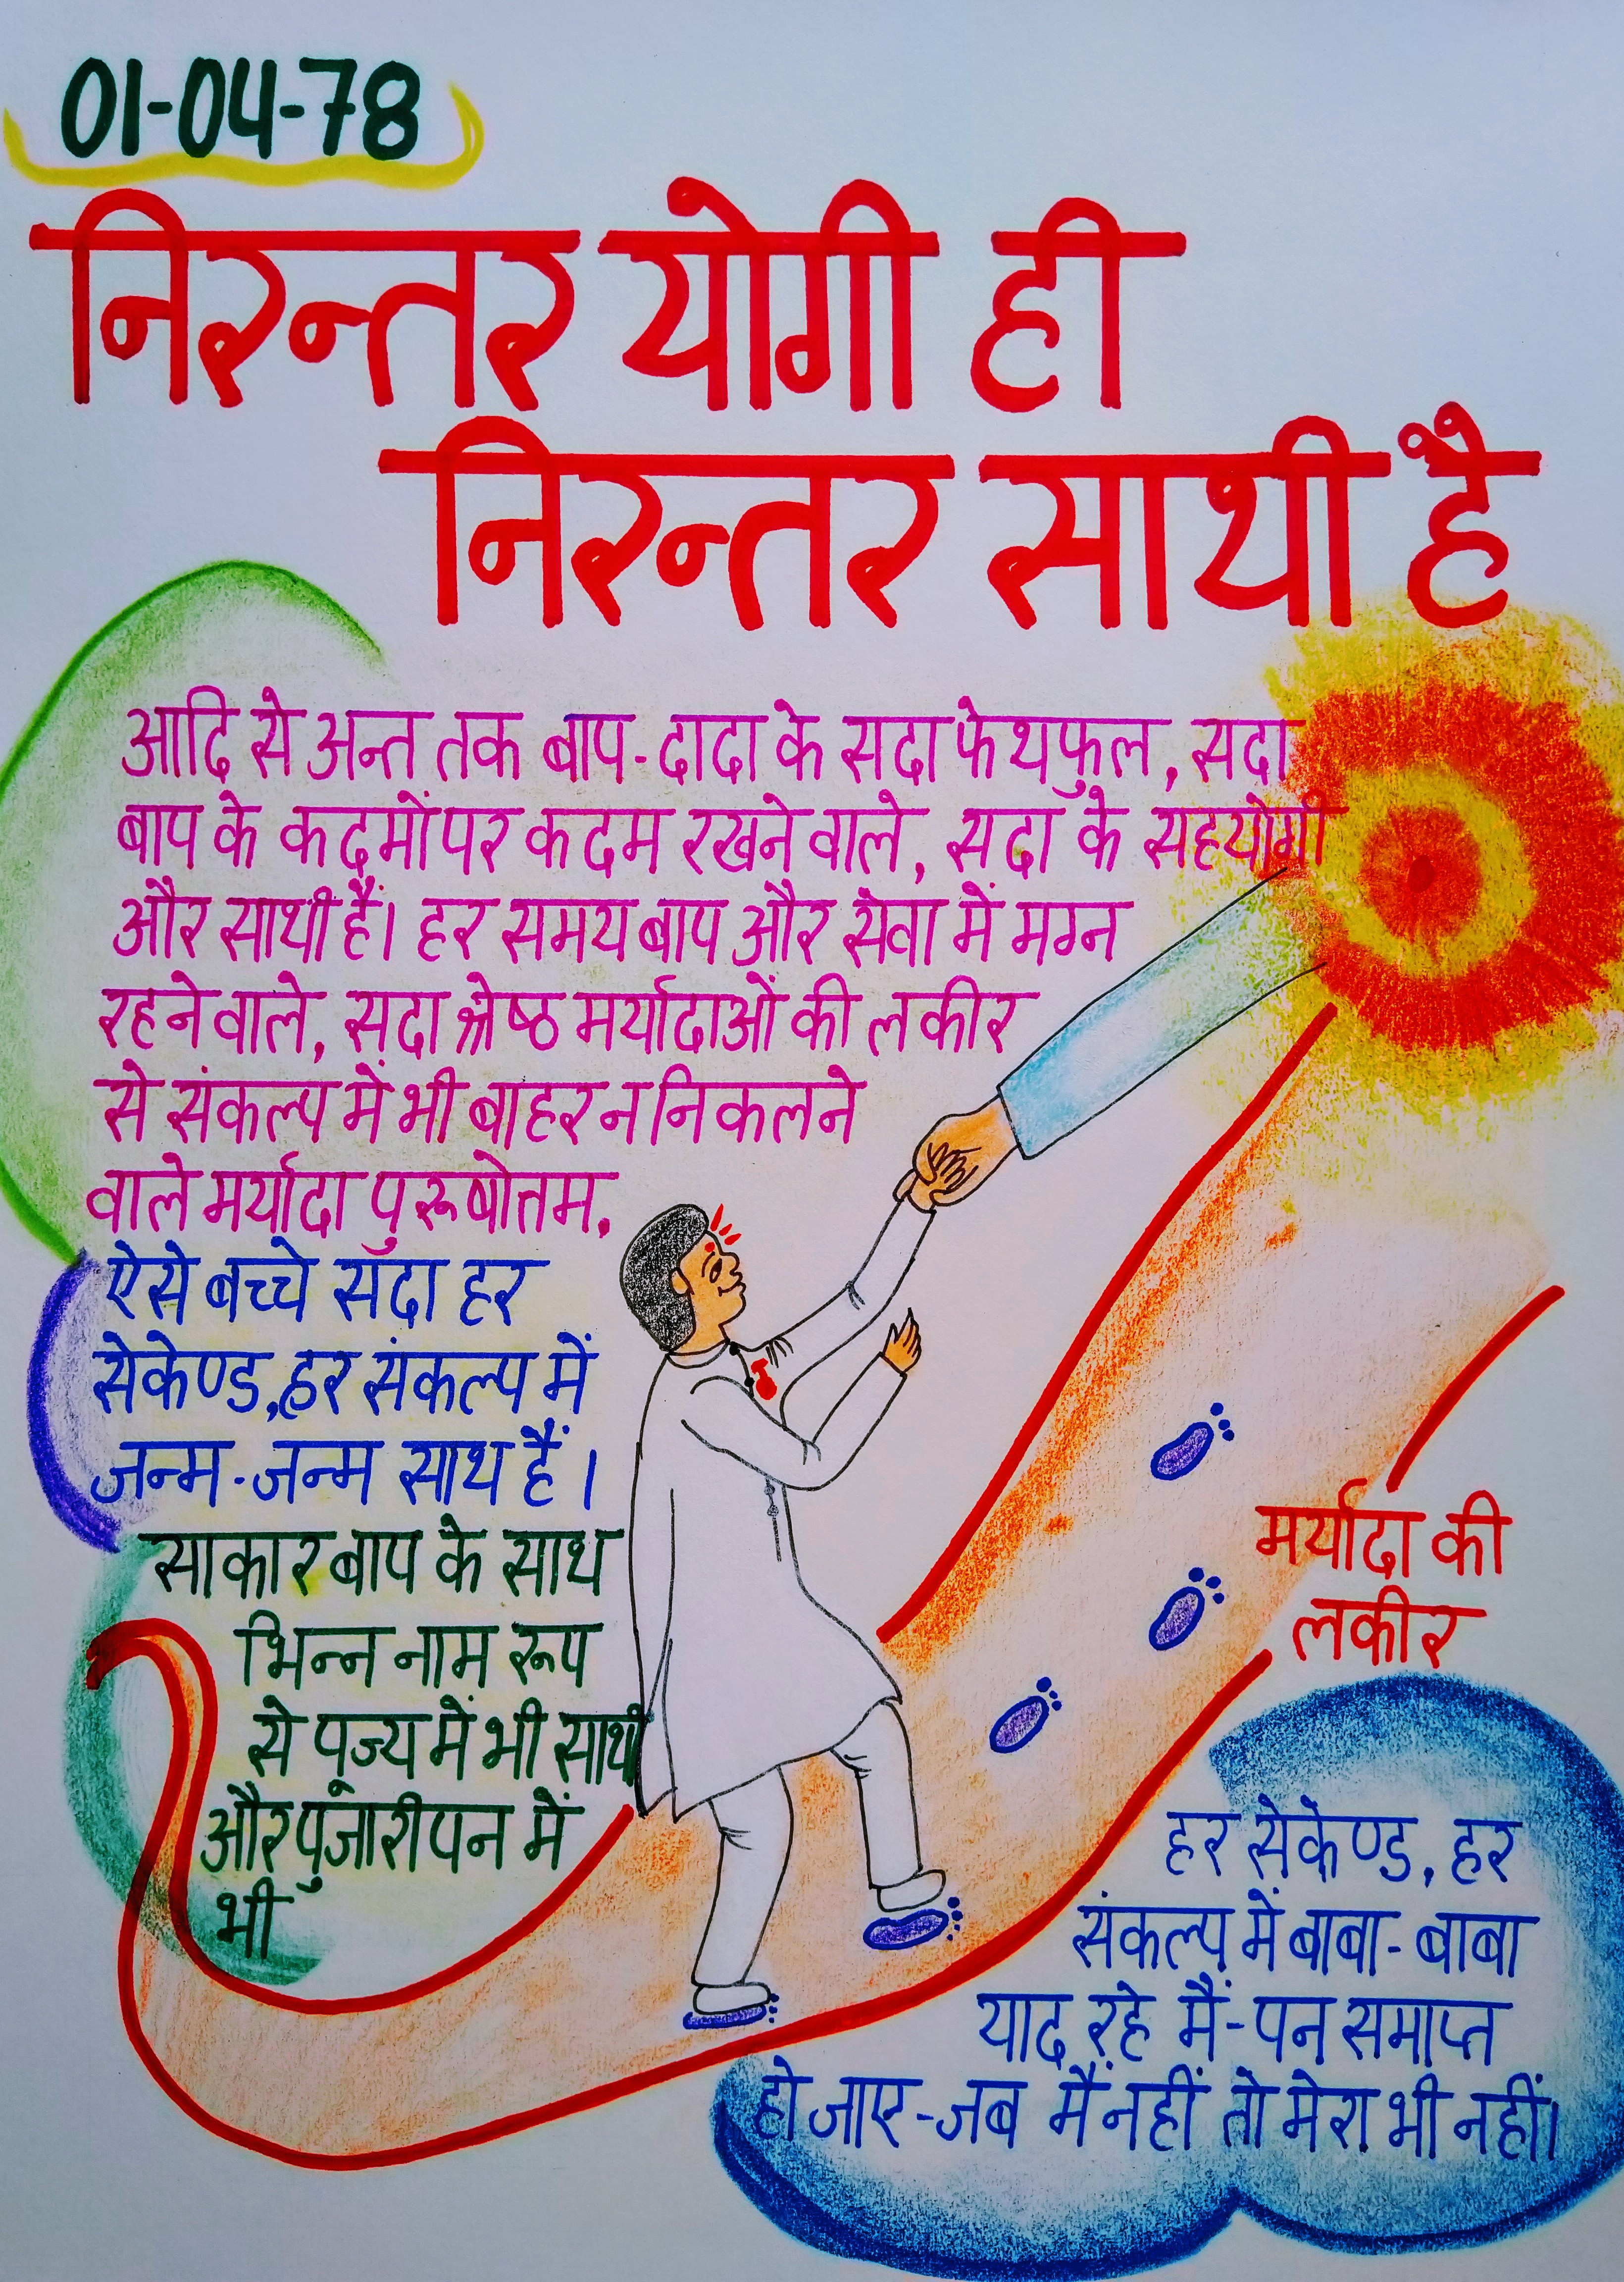 01-04-78
निरन्तर योगी ही
निरन्तर साथी है
आदि से अन्त तक बाप-दादा के सदा फेथफुल, सदा
बाप के कदमों पर कदम रखने वाले, सदा के सहयोगी
और साथी हैं। हर समय बाप और सेवा में मग्न
रहने वाले, सदा श्रेष्ठ मर्यादाओं की लकीर
से संकल्प में भी बाहर न निकलने
वाले मर्यादा पुरूषोतम.
ऐसे बच्चे सदा हर
सेकेण्ड, हर संकल्प में
जन्म-जन्म साथ हैं।
साकार बाप के साथ
भिन्न नाम रूप
से पूज्य में भी साथी
और पुजारीपन में
भी
मर्यादा की
लकीर
हर सेकेण्ड, हर
संकल्प में बाबा-बाबा
याद रहे मैं-पन समाप्त
हो जाए-जब मैं नहीं तो मेरा भी नहीं।